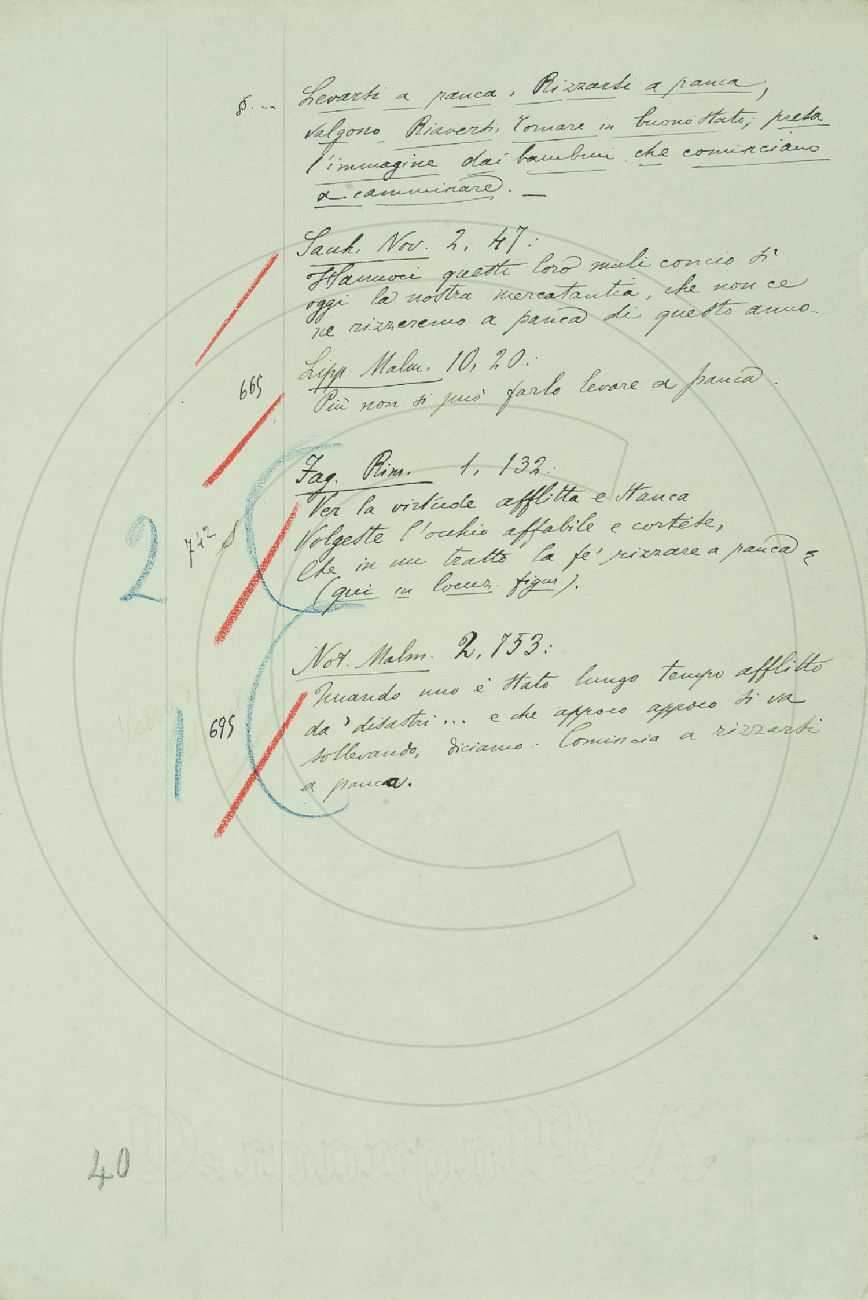 §... Levarsi a panca, Rizzarsi a panca,
valgono Riaversi, Tornare in buono stato; presa
l'immagine dai bambini che cominciano
a camminare. —
Sacch. Nov. 2, 47:
Hannoci questi loro muli concio sì
oggi la nostra mercatantia, che non ce
ne rizzeremo a panca di questo anno.
Lipp. Malm. 10, 20:
665
Più non si può farlo levare a panca.
Fag. Rim. 1, 132:
Ver la virtude afflitta e stanca
742 §
Volgeste l'occhio affabile e cortese,
2
Che in un tratto la fe' rizzare a panca
(qui in locuz. figur).
Not. Malm. 2, 753:
Quando uno è stato lungo tempo afflitto
1
695
da' disastri... e che appoco appoco si va
sollevando, diciamo: Comincia a rizzarsi
a panca.
40